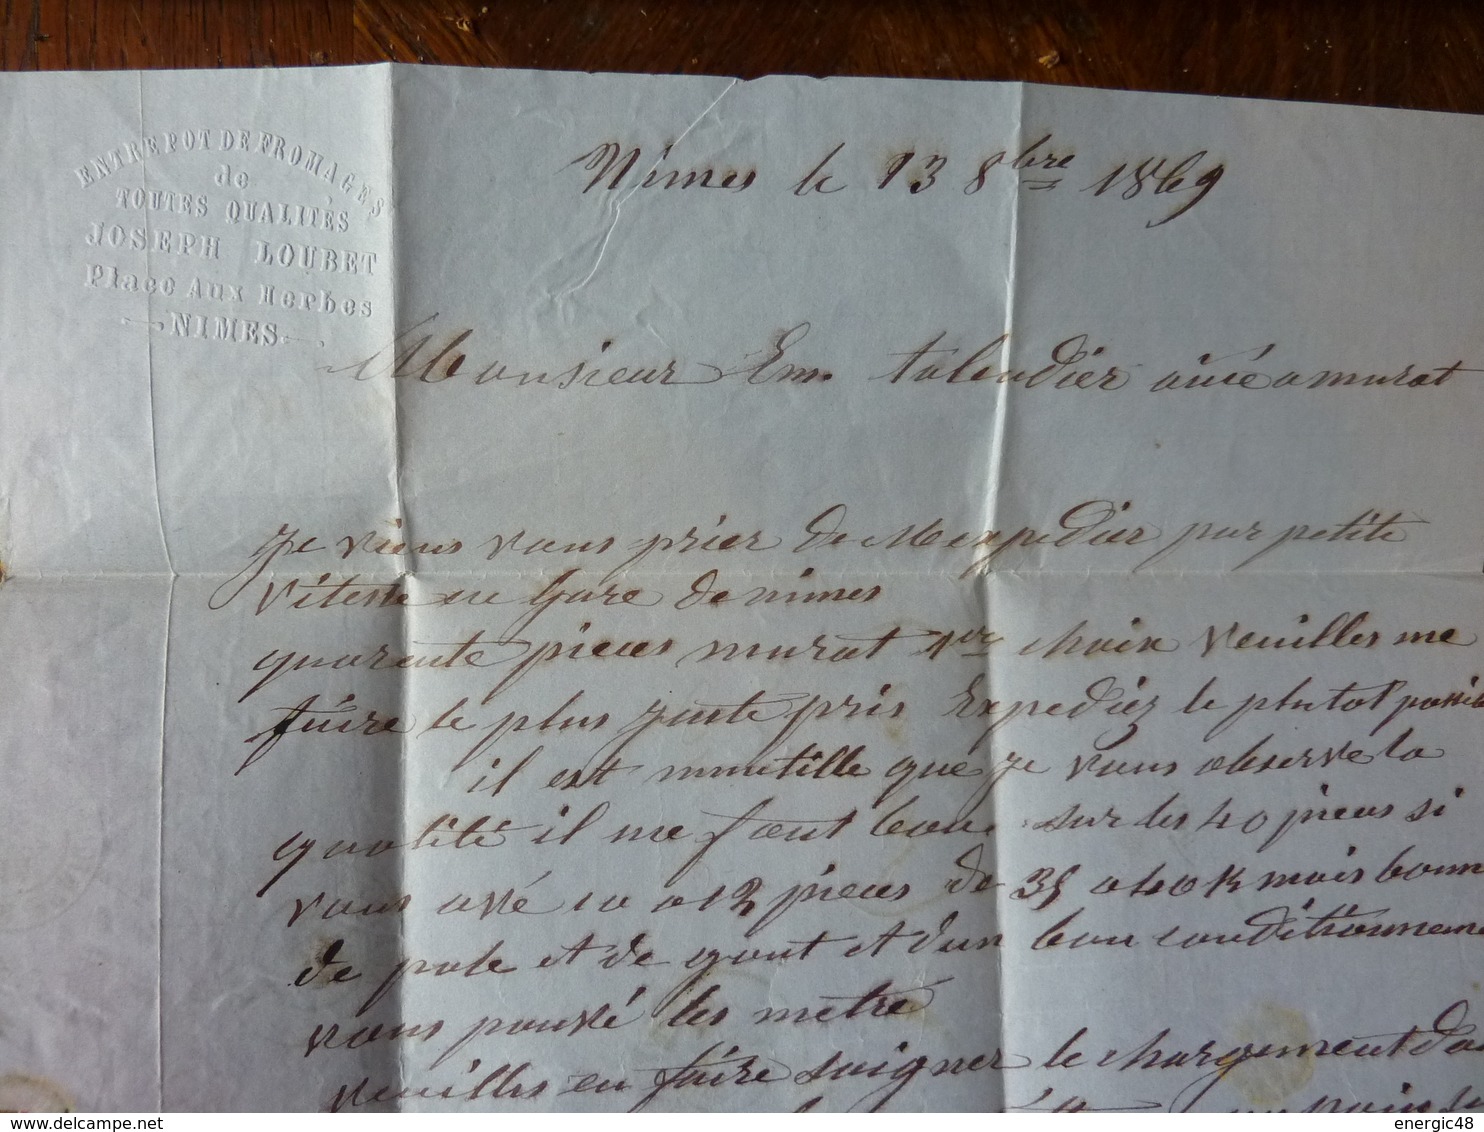 ENTREPOT DE FROMAGES
de
TOUTES QUALITÉS
JOSEPH LOUBET
Place Aux Herbes
NIMES
Nimes le 13 8bre 1869
Monsieur Em. talendier ainé a murat
Je viens vous prier de M'expedier par petite
vitesse en Gare de nimes
quarante pieces murat 1er choix veuilles me
faire le plus juste pris Expediez le plutot possib
il est innutille que je vous observe la
qualité il me faut bon sur les 40 pieces si
vous avé 10 a 12 pieces de 35 a 40 K mais bonn
de pate et de gout et d'un bon conditionneme
vous pouvé les metre
veuilles en faire soigner le chargement da
delcampe.net
energic48